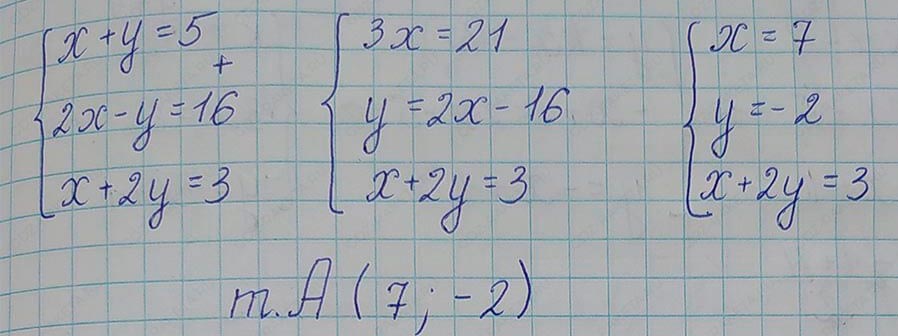 x + y = 5
+
2x - y = 16
x + 2y = 3
3x = 21
y = 2x - 16
x + 2y = 3
x = 7
y = -2
x + 2y = 3
т. А (7; -2)